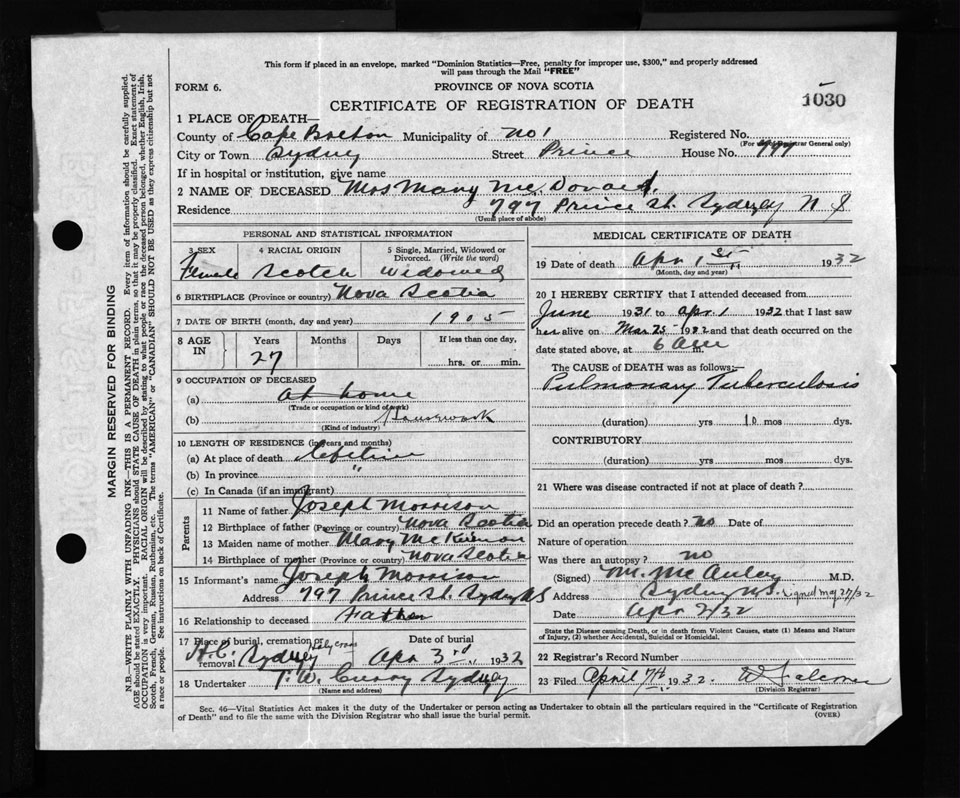 This form if placed in an envelope, marked "Dominion Statistics—Free, penalty for improper use, $300," and properly addressed
will pass through the Mail "FREE"
FORM 6.
PROVINCE OF NOVA SCOTIA
CERTIFICATE OF REGISTRATION OF DEATH
1030
1 PLACE OF DEATH—
County of Cape Breton Municipality of No 1 Registered No.
(For use of Registrar General only)
City or Town Sydney Street Prince House No. 797
If in hospital or institution, give name
2 NAME OF DECEASED Mrs Mary McDonald.
Residence 797 Prince St. Sydney N S
(Usual place of abode)
PERSONAL AND STATISTICAL INFORMATION
3 SEX 4 RACIAL ORIGIN 5 Single, Married, Widowed or Divorced. (Write the word)
Female Scotch Widowed
6 BIRTHPLACE (Province or country) Nova Scotia
7 DATE OF BIRTH (month, day and year) 1905
8 AGE IN Years Months Days If less than one day,
27 hrs. or min.
9 OCCUPATION OF DECEASED
(a) At home
(Trade or occupation or kind of work)
(b) Housework
(Kind of industry)
10 LENGTH OF RESIDENCE (in years and months)
(a) At place of death Lifetime
(b) In province "
(c) In Canada (if an immigrant)
Parents
11 Name of father Joseph Morrison
12 Birthplace of father (Province or country) Nova Scotia
13 Maiden name of mother Mary McKinnon
14 Birthplace of mother (Province or country) Nova Scotia
15 Informant's name Joseph Morrison
Address 797 Prince St. Sydney NS
16 Relationship to deceased Father
17 Place of burial, cremation or removal H.C. Sydney Holy Cross Date of burial Apr 3rd 1932
18 Undertaker T. W. Curry Sydney
(Name and address)
MEDICAL CERTIFICATE OF DEATH
19 Date of death Apr 1st 1932
(Month, day and year)
20 I HEREBY CERTIFY that I attended deceased from
June 1931 to Apr 1 1932 that I last saw
her alive on Mar 25 1932 and that death occurred on the
date stated above, at 6 am
The CAUSE OF DEATH was as follows:—
Pulmonary Tuberculosis
(duration) yrs 10 mos dys.
CONTRIBUTORY
(duration) yrs. mos dys.
21 Where was disease contracted if not at place of death?
Did an operation precede death? No Date of
Nature of operation
Was there an autopsy? no
(Signed) M. McAulay M.D.
Address Sydney N.S. Signed May 27/32
Date Apr 2/32
State the Disease causing Death, or in death from Violent Causes, state (1) Means and Nature
of Injury, (2) whether Accidental, Suicidal or Homicidal.
22 Registrar's Record Number
23 Filed April 7th 1932. W Falconer
(Division Registrar)
Sec. 46—Vital Statistics Act makes it the duty of the Undertaker or person acting as Undertaker to obtain all the particulars required in the "Certificate of Registration
of Death" and to file the same with the Division Registrar who shall issue the burial permit.
(OVER)
MARGIN RESERVED FOR BINDING
N.B.—WRITE PLAINLY WITH UNFADING INK—THIS IS A PERMANENT RECORD. Every item of information should be carefully supplied.
AGE should be stated EXACTLY. PHYSICIANS should STATE CAUSE OF DEATH in plain terms, so that it may be properly classified. Exact statement of
OCCUPATION is very important. RACIAL ORIGIN will be described by stating to what people or race the deceased person belonged, whether English, Irish,
Scotch, French, German, Russian, Ruthenian, etc. The terms "AMERICAN" or "CANADIAN" SHOULD NOT BE USED as they express citizenship but not
a race or people. See instructions on back of Certificate.